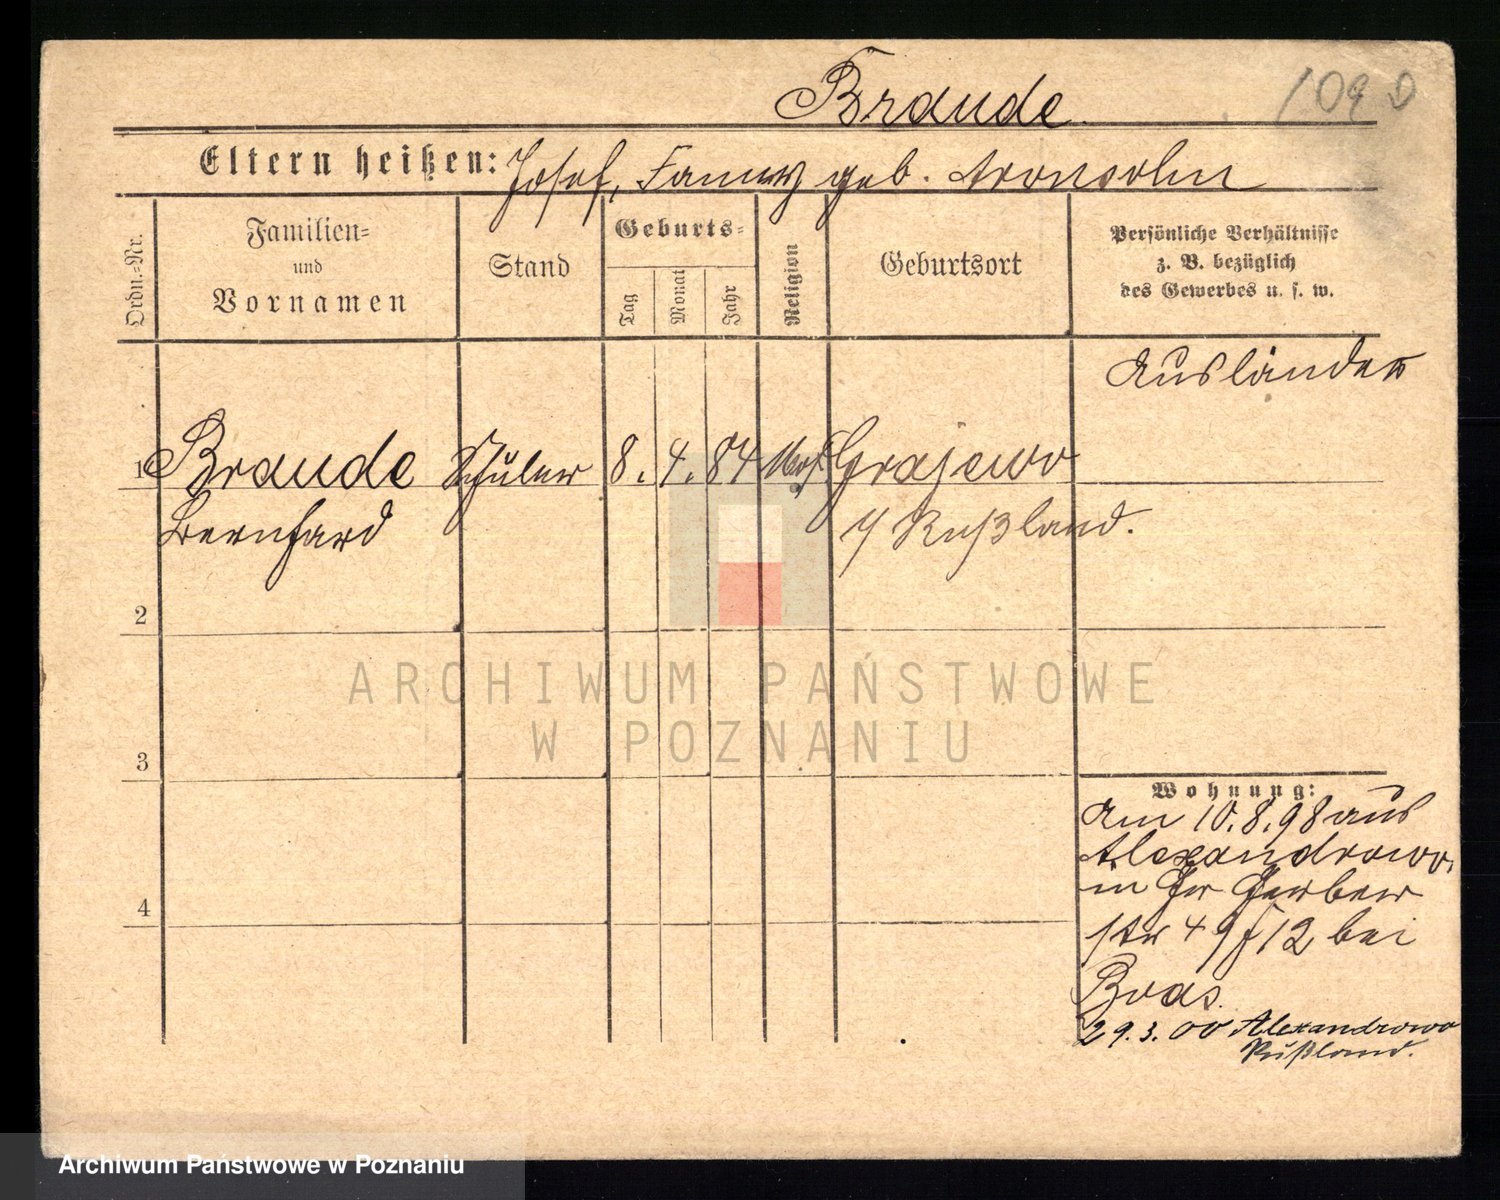 Braude
109
Eltern heißen: Josef, Fanny geb. Aronsohn
Ordn.=Nr.
Familien=
und
Vornamen
Stand
Geburts=
Tag
Monat
Jahr
Religion
Geburtsort
Persönliche Verhältnisse
z. B. bezüglich
des Gewerbes u. s. w.
Ausländer
1 Braude Schüler 8. 4. 84 Mos. Grajewo
Bernhard Rußland.
2
3
4
Wohnung:
Am 10.8.98 aus
Alexandrowo,
in Gr Gerber
str 49 12 bei
Boas.
29.3.00 Alexandrowo
Rußland.
ARCHIWUM PAŃSTWOWE
W POZNANIU
Archiwum Państwowe w Poznaniu